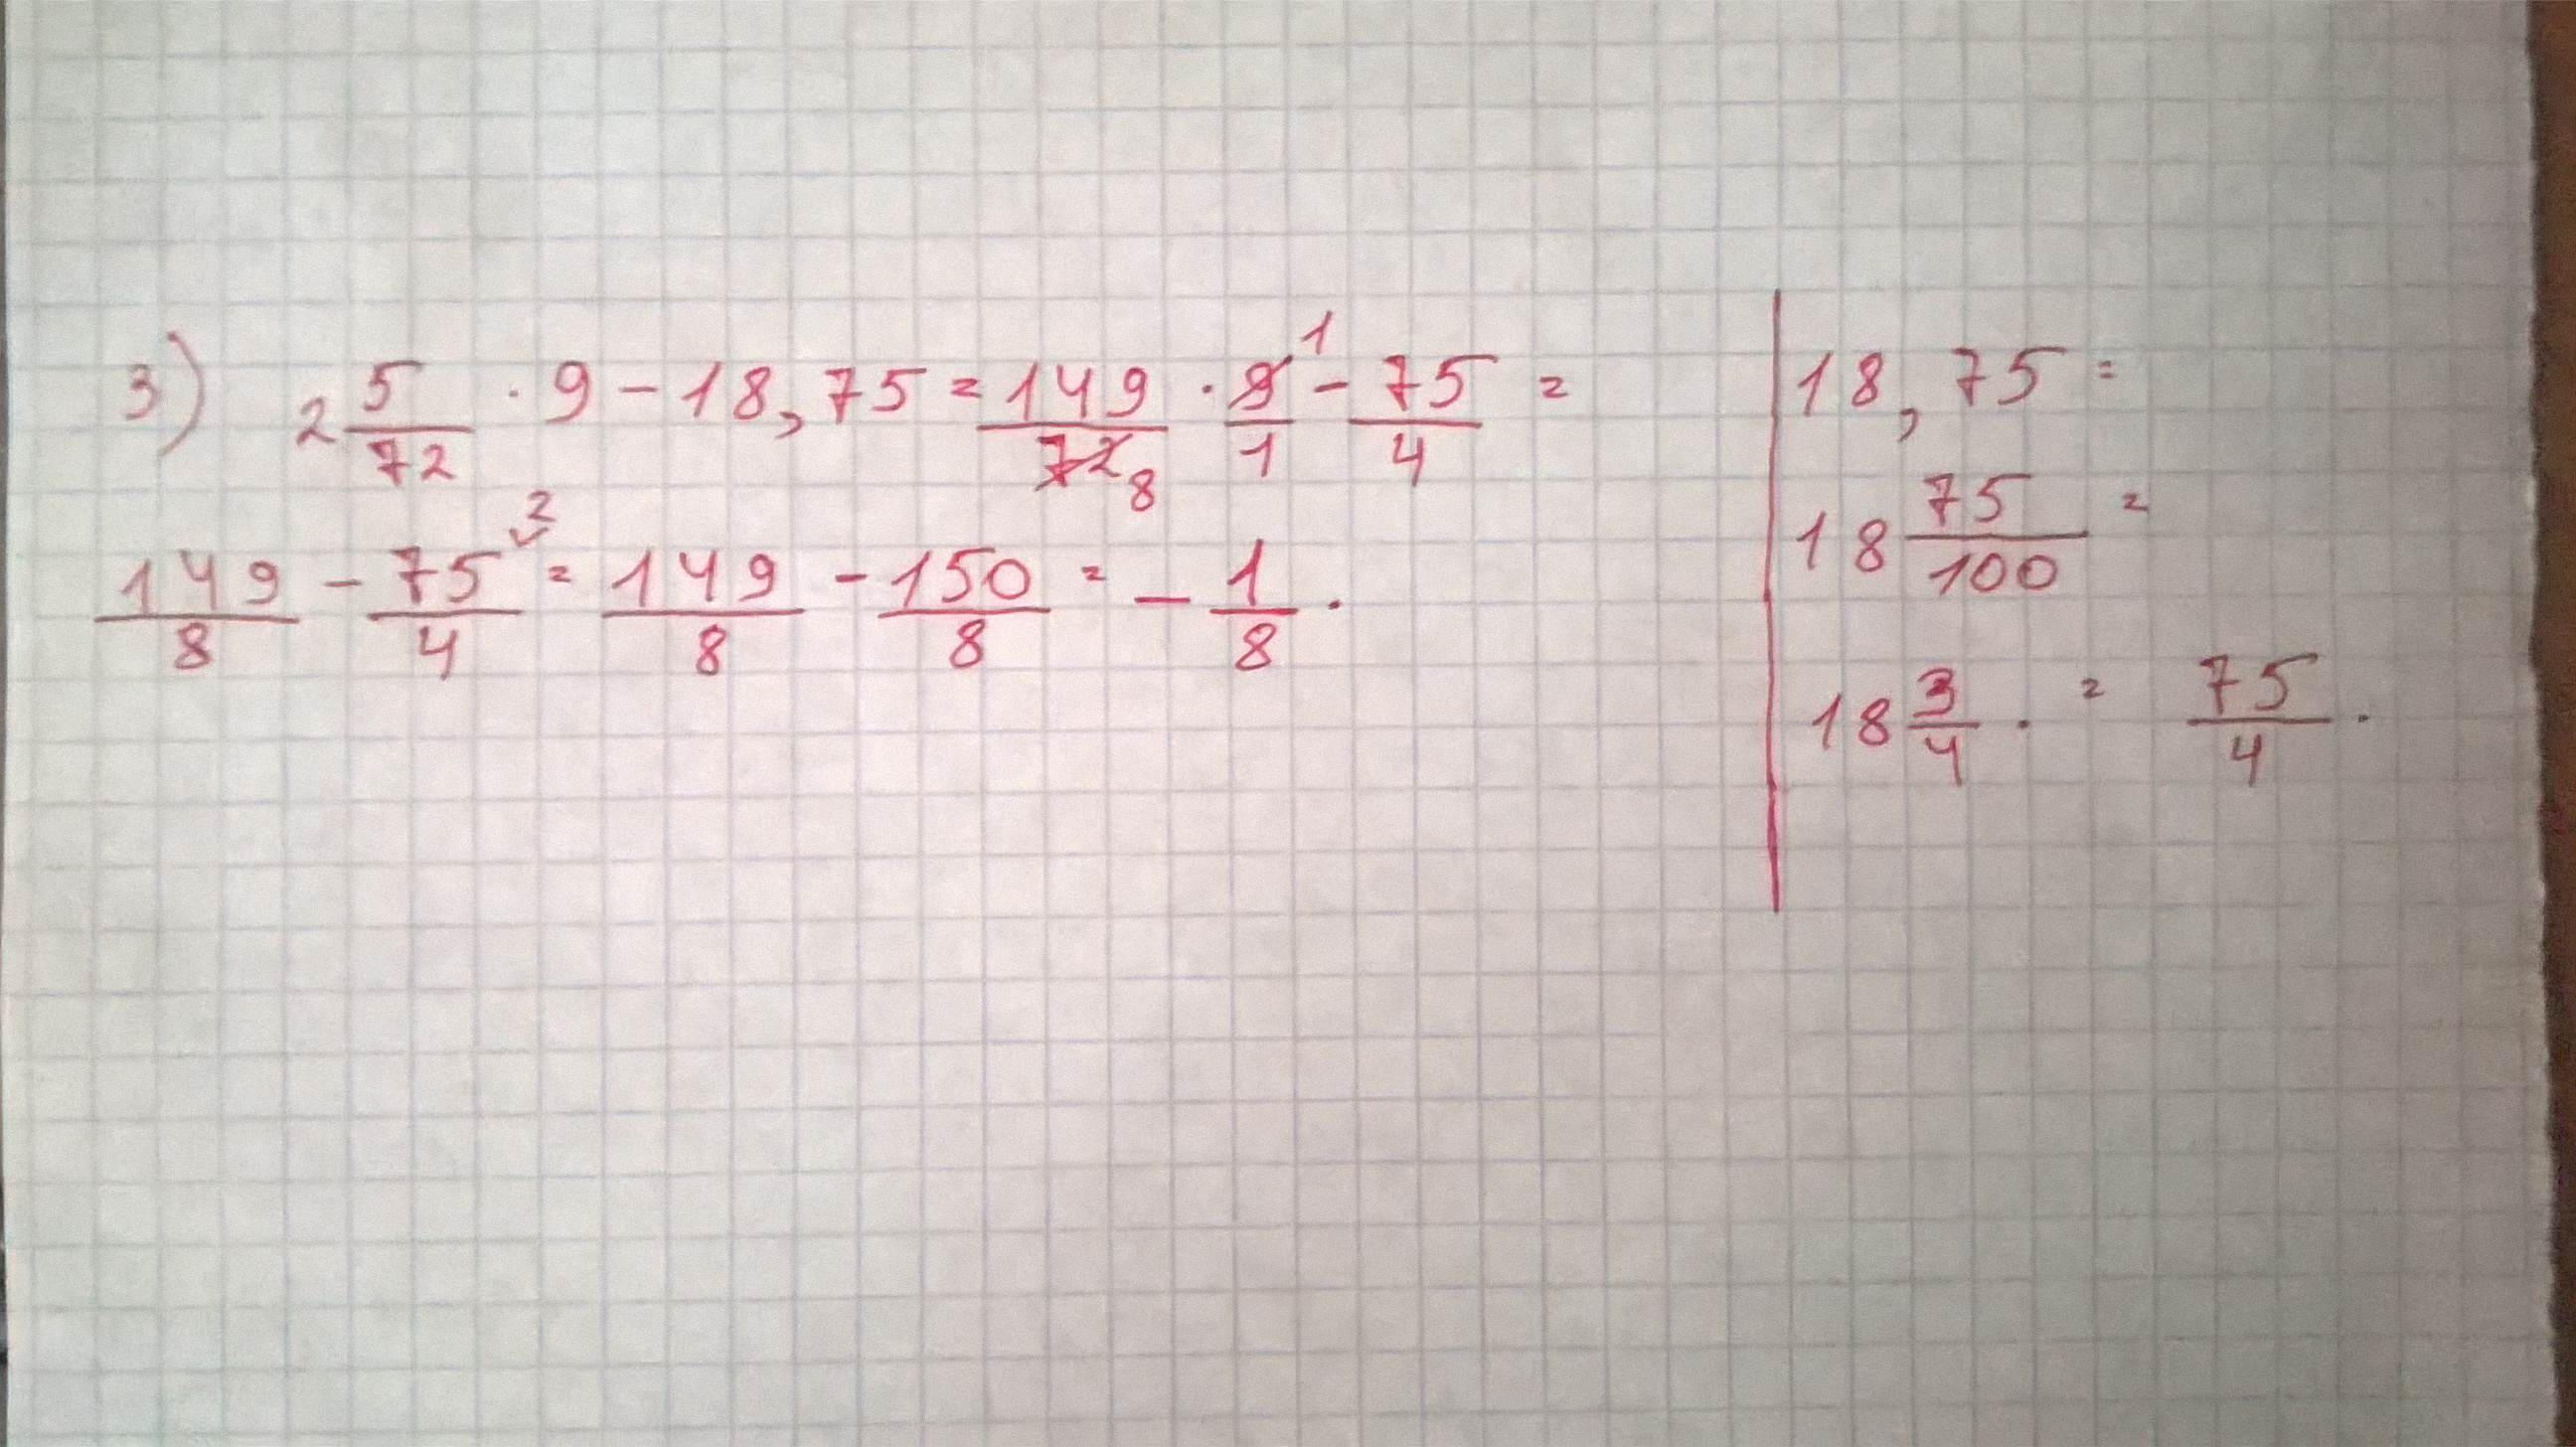 3) 2 5/72 · 9 - 18,75 = 149/72 8 · 9/1 1 - 75/4 =
149/8 - 75/4 2 = 149/8 - 150/8 = - 1/8 .
18,75 =
18 75/100 =
18 3/4 . = 75/4 .